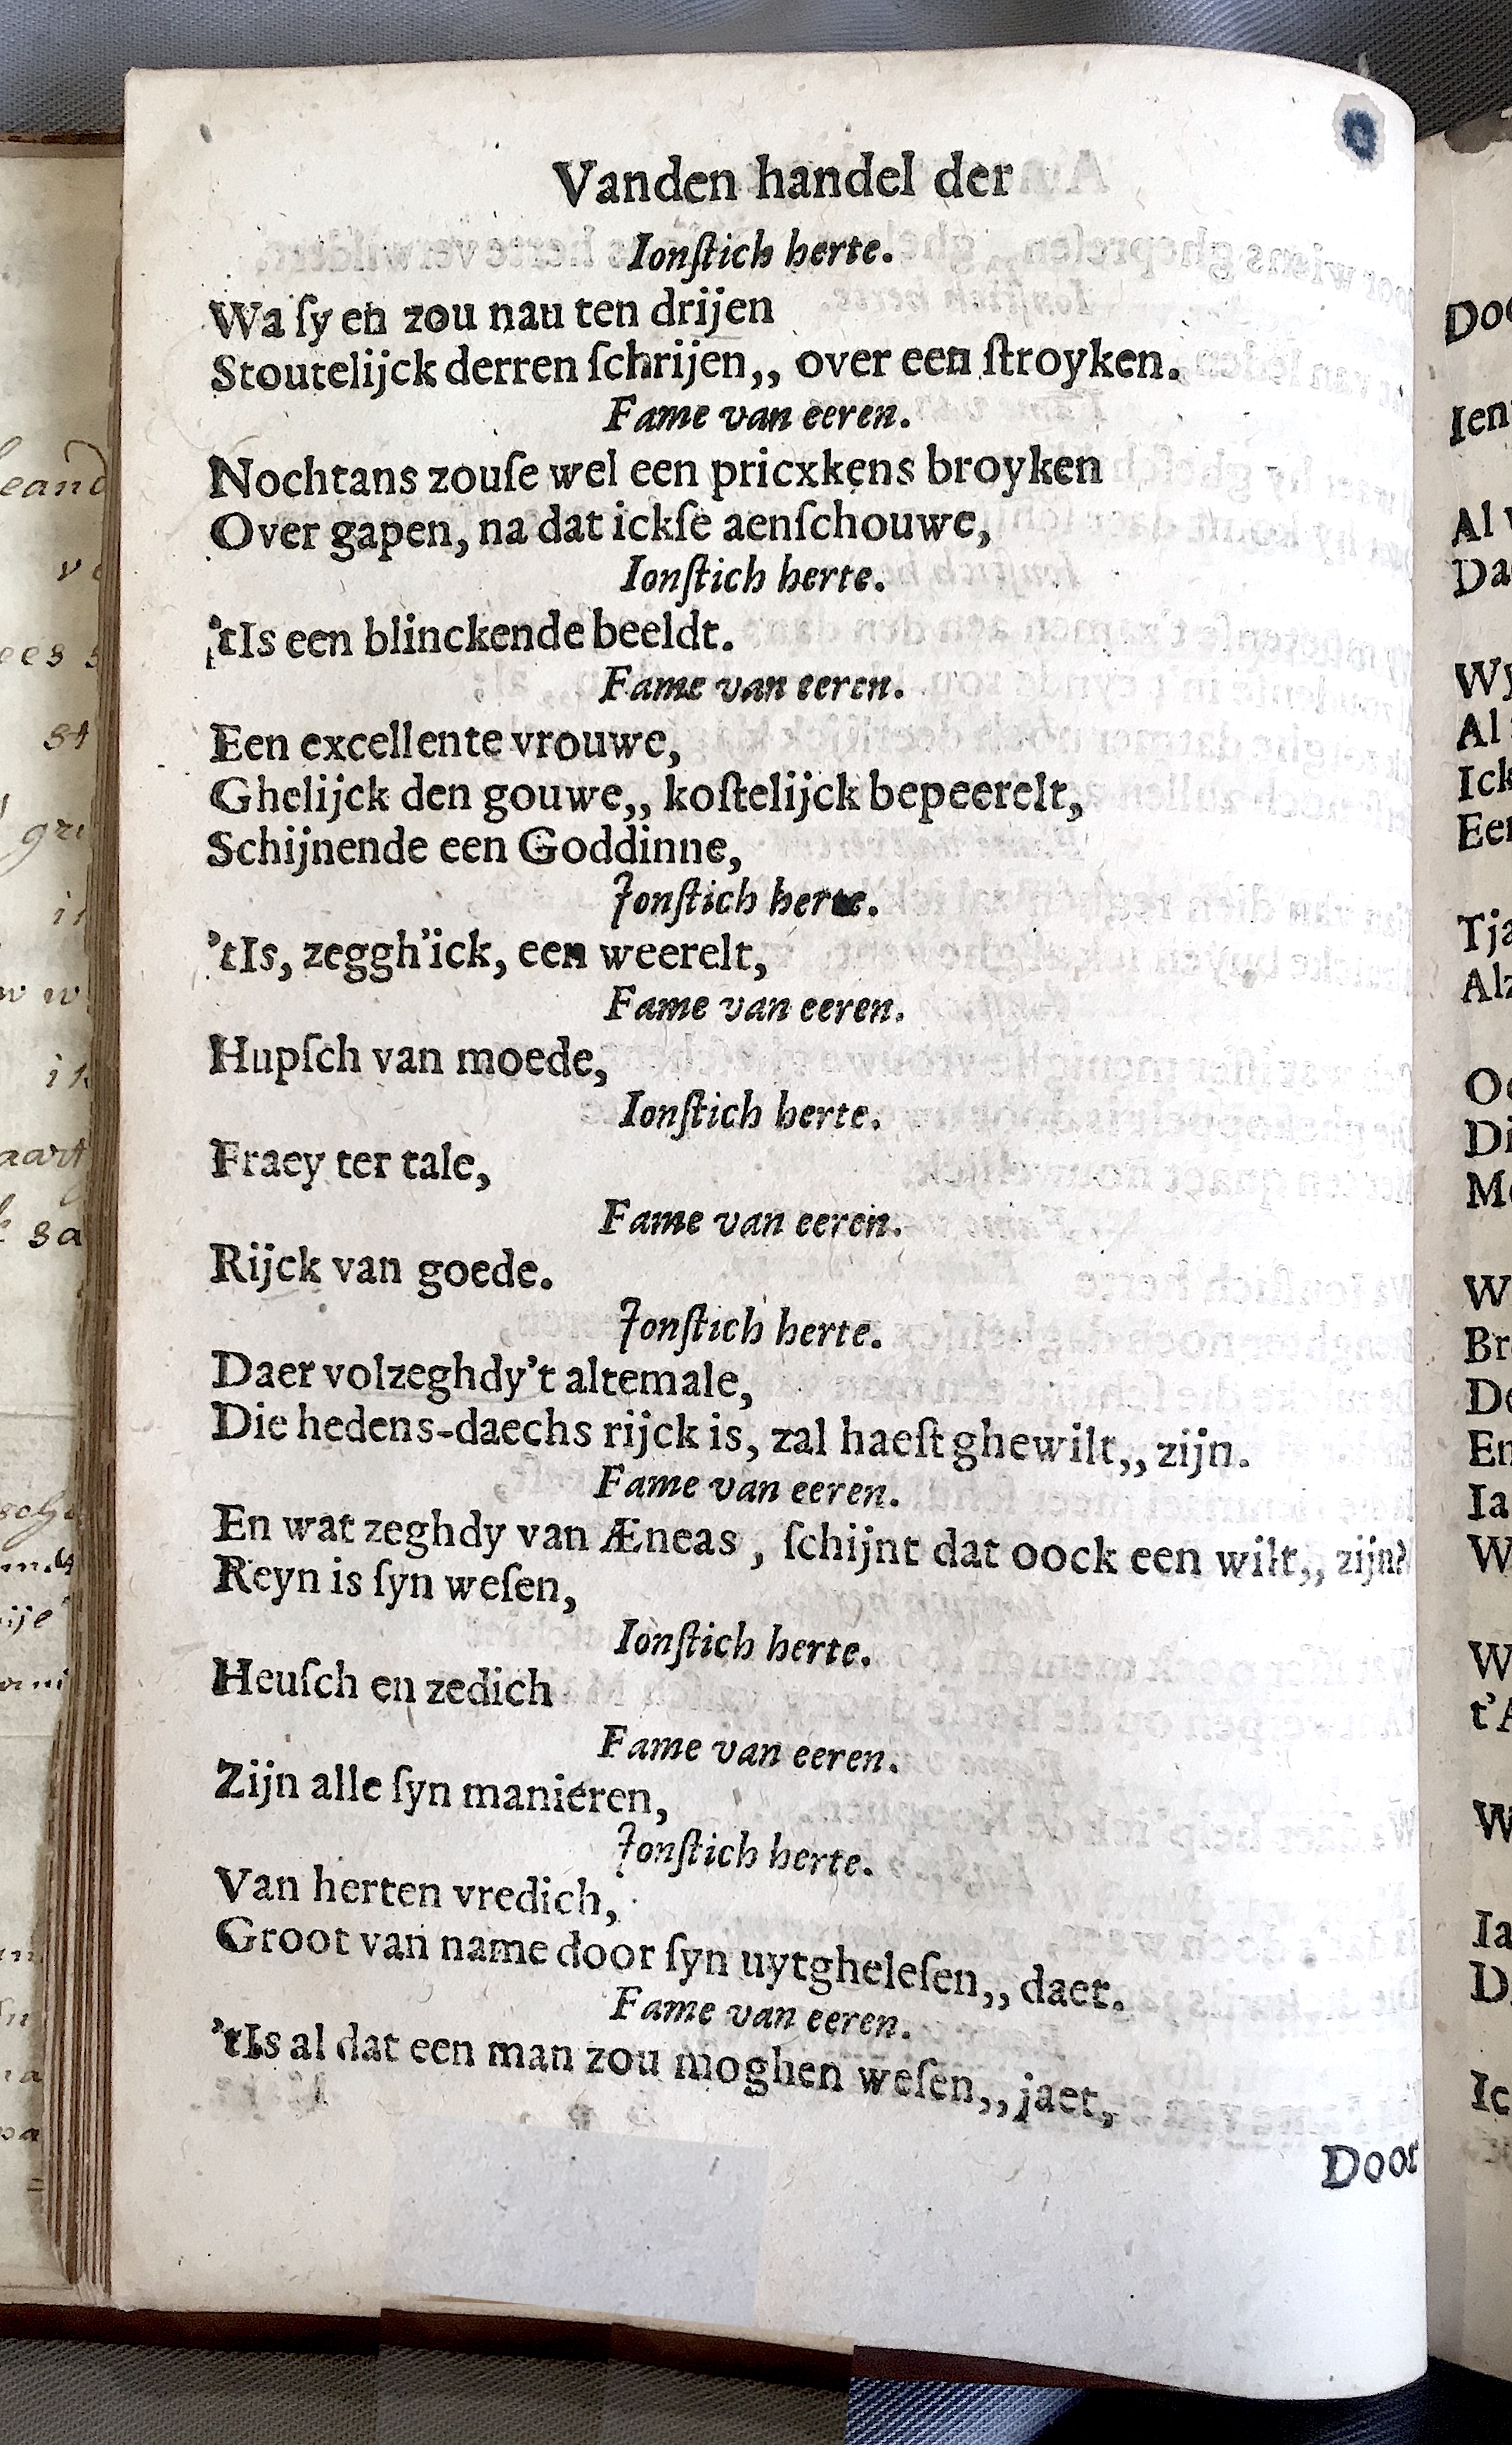 Vanden handel der
Ionſtich herte.
Wa ſy en zou nau ten drijen
Stoutelijck derren ſchrijen,, over een ſtroyken.
Fame van eeren.
Nochtans zouſe wel een pricxkens broyken
Over gapen, na dat ickſe aenſchouwe,
Ionſtich herte.
'tIs een blinckende beeldt.
Fame van eeren.
Een excellente vrouwe,
Ghelijck den gouwe,, koſtelijck bepeerelt,
Schijnende een Goddinne,
Jonſtich herte.
'tIs, zeggh'ick, een weerelt,
Fame van eeren.
Hupſch van moede,
Ionſtich herte.
Fraey ter tale,
Fame van eeren.
Rijck van goede.
Jonſtich herte.
Daer volzeghdy't altemale,
Die hedens-daechs rijck is, zal haeſt ghewilt,, zijn.
Fame van eeren.
En wat zeghdy van Æneas, ſchijnt dat oock een wilt,, zijn?
Reyn is ſyn weſen,
Ionſtich herte.
Heuſch en zedich
Fame van eeren.
Zijn alle ſyn maniéren,
Jonſtich herte.
Van herten vredich,
Groot van name door ſyn uytgheleſen,, daet.
Fame van eeren.
'tIs al dat een man zou moghen weſen,, jaet,
Door